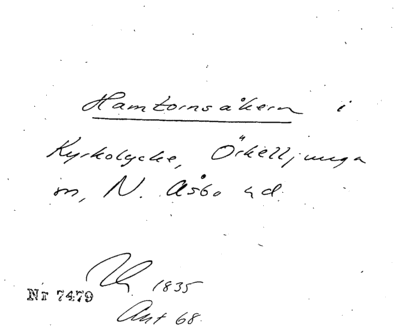 Hamtornsåkern i
Kyrkolycke, Örkelljunga
sn, N. Åsbo hd.
1835
Nr 7479
Ant 68.